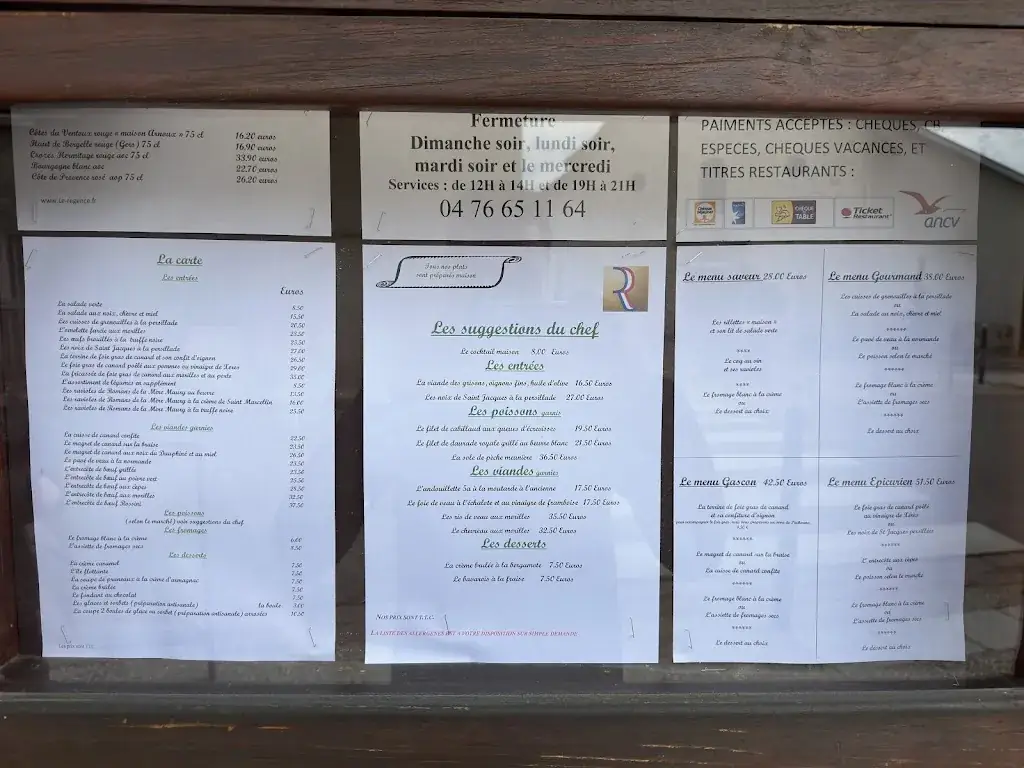 Côtes du Ventoux rouge « maison Arnoux » 75 cl 16.20 euros
Haut de Bergelle rouge (Gers) 75 cl 16.90 euros
Crozes Hermitage rouge aoc 75 cl 33.90 euros
Bourgogne blanc aoc 22.70 euros
Côte de Provence rosé aop 75 cl 26.20 euros
www.Le-regence.fr
Fermeture
Dimanche soir, lundi soir,
mardi soir et le mercredi
Services : de 12H à 14H et de 19H à 21H
04 76 65 11 64
PAIMENTS ACCEPTES : CHEQUES, CB
ESPECES, CHEQUES VACANCES, ET
TITRES RESTAURANTS :
CHEQUE de TABLE
Ticket Restaurant
ancv
La carte
Les entrées
Euros
La salade verte 8.50
La salade aux noix, chèvre et miel 15.50
Les cuisses de grenouilles à la persillade 20.50
L'omelette farcie aux morilles 23.50
Les œufs brouillés à la truffe noire 23.50
Les noix de Saint Jacques à la persillade 27.00
La terrine de foie gras de canard et son confit d'oignon 26.50
Le foie gras de canard poêlé aux pommes ou vinaigre de Xeres 29.00
La fricassée de foie gras de canard aux morilles et au porto 35.00
L'assortiment de légumes en supplément 8.50
Les ravioles de Romans de la Mère Maury au beurre 13.50
Les ravioles de Romans de la Mère Maury à la crème de Saint Marcellin 16.00
Les ravioles de Romans de la Mère Maury à la truffe noire 25.50
Les viandes garnies
La cuisse de canard confite 22.50
Le magret de canard sur la braise 23.50
Le magret de canard aux noix du Dauphiné et au miel 26.50
Le pavé de veau à la normande 23.50
L'entrecôte de bœuf grillée 23.50
L'entrecôte de bœuf au poivre vert 25.50
L'entrecôte de bœuf aux cèpes 28.50
L'entrecôte de bœuf aux morilles 32.50
L'entrecôte de bœuf Rossini 37.50
Les poissons
(selon le marché) voir suggestions du chef
Les fromages
Le fromage blanc à la crème 6.00
L'assiette de fromages secs 8.50
Les desserts
La crème caramel 7.50
L'île flottante 7.50
La coupe de pruneaux à la crème d'armagnac 7.50
La crème brulée 7.50
Le fondant au chocolat 7.50
Les glaces et sorbets (préparation artisanale) la boule 3.00
La coupe 2 boules de glace ou sorbet (préparation artisanale) arrosées 10.50
Tous nos plats
sont préparés maison
R
Les suggestions du chef
Le cocktail maison 8.00 Euros
Les entrées
La viande des grisons, oignons fins, huile d'olive 16.50 Euros
Les noix de Saint Jacques à la persillade 27.00 Euros
Les poissons garnis
Le filet de cabillaud aux queues d'écrevisses 19.50 Euros
Le filet de daurade royale grillé au beurre blanc 21.50 Euros
La sole de pêche meunière 36.50 Euros
Les viandes garnies
L'andouillette 5a à la moutarde à l'ancienne 17.50 Euros
Le foie de veau à l'échalote et au vinaigre de framboise 17.50 Euros
Les ris de veau aux morilles 35.50 Euros
Le chevreau aux morilles 32.50 Euros
Les desserts
La crème brulée à la bergamote 7.50 Euros
Le bavarois à la fraise 7.50 Euros
NOS PRIX SONT T.T.C.
LA LISTE DES ALLERGENES EST A VOTRE DISPOSITION SUR SIMPLE DEMANDE
Le menu saveur 28.00 Euros
Les rillettes « maison »
et son lit de salade verte
****
Le coq au vin
et ses ravioles
****
Le fromage blanc à la crème
ou
Le dessert au choix
Le menu Gourmand 38.00 Euros
Les cuisses de grenouilles à la persillade
ou
La salade au noix, chèvre et miel
******
Le pavé de veau à la normande
ou
Le poisson selon le marché
******
Le fromage blanc à la crème
ou
L'assiette de fromages secs
******
Le dessert au choix
Le menu Gascon 42.50 Euros
La terrine de foie gras de canard
et sa confiture d'oignon
******
Le magret de canard sur la braise
ou
La cuisse de canard confite
******
Le fromage blanc à la crème
ou
L'assiette de fromages secs
******
Le dessert au choix
Le menu Epicurien 51.50 Euros
Le foie gras de canard poêlé
au vinaigre de Xeres
ou
Les noix de St Jacques persillées
******
L'entrecôte aux cèpes
ou
Le poisson selon le marché
******
Le fromage blanc à la crème
ou
L'assiette de fromages secs
******
Le dessert au choix